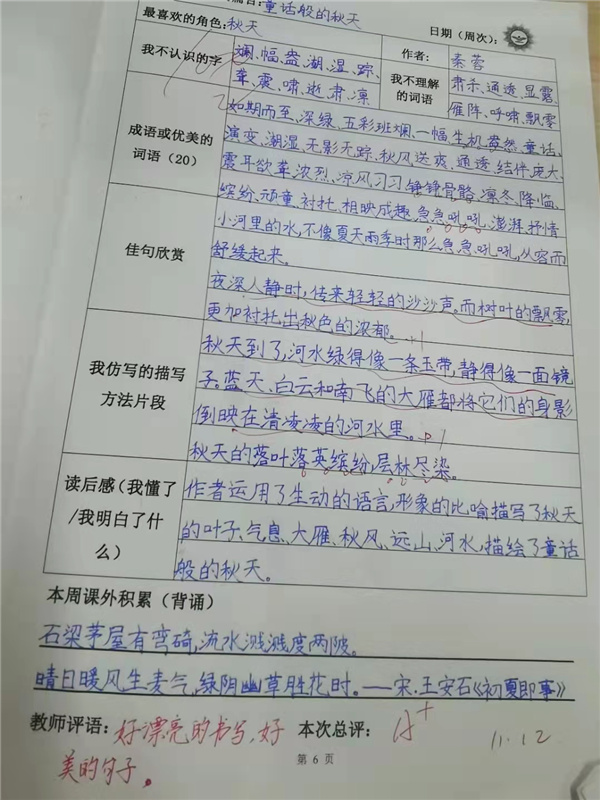 篇目：童话般的秋天
最喜欢的角色：秋天
日期（周次）：
我不认识的字
斓、幅、盎、潮、湿、踪、
耸、震、啸、逝、肃、凛
作者：
秦蓉
我不理解的词语
肃杀、通透、显露、
雁阵、呼啸、飘零
成语或优美的词语（20）
如期而至、深绿、五彩斑斓、一幅、生机盎然、童话、
演变、潮湿、无影无踪、秋风送爽、通透、结伴、庞大、
震耳欲聋、浓烈、凉风习习、铮铮骨骼、凛冬、降临、
缤纷、顽童、衬托、相映成趣、急急吼吼、澎湃、抒情
佳句欣赏
小河里的水，不像夏天雨季时那么急急吼吼，从容而
舒缓起来。
夜深人静时，传来轻轻的沙沙声。而树叶的飘零，
更加衬托出秋色的浓郁。 +1
我仿写的描写方法片段
秋天到了，河水绿得像一条玉带，静得像一面镜
子。蓝天、白云和南飞的大雁都将它们的身影
倒映在清凌凌的河水里。 +1
秋天的落叶落英缤纷，层林尽染。
读后感（我懂了/我明白了什么）
作者运用了生动的语言，形象的比喻描写了秋天
的叶子、气息、大雁、秋风、远山、河水，描绘了童话
般的秋天。
本周课外积累（背诵）
石梁茅屋有弯碕，流水溅溅度两陂。
晴日暖风生麦气，绿阴幽草胜花时。——宋.王安石《初夏即事》
教师评语：好漂亮的书写，好
美的句子。
本次总评：A+
11.12
第 6 页